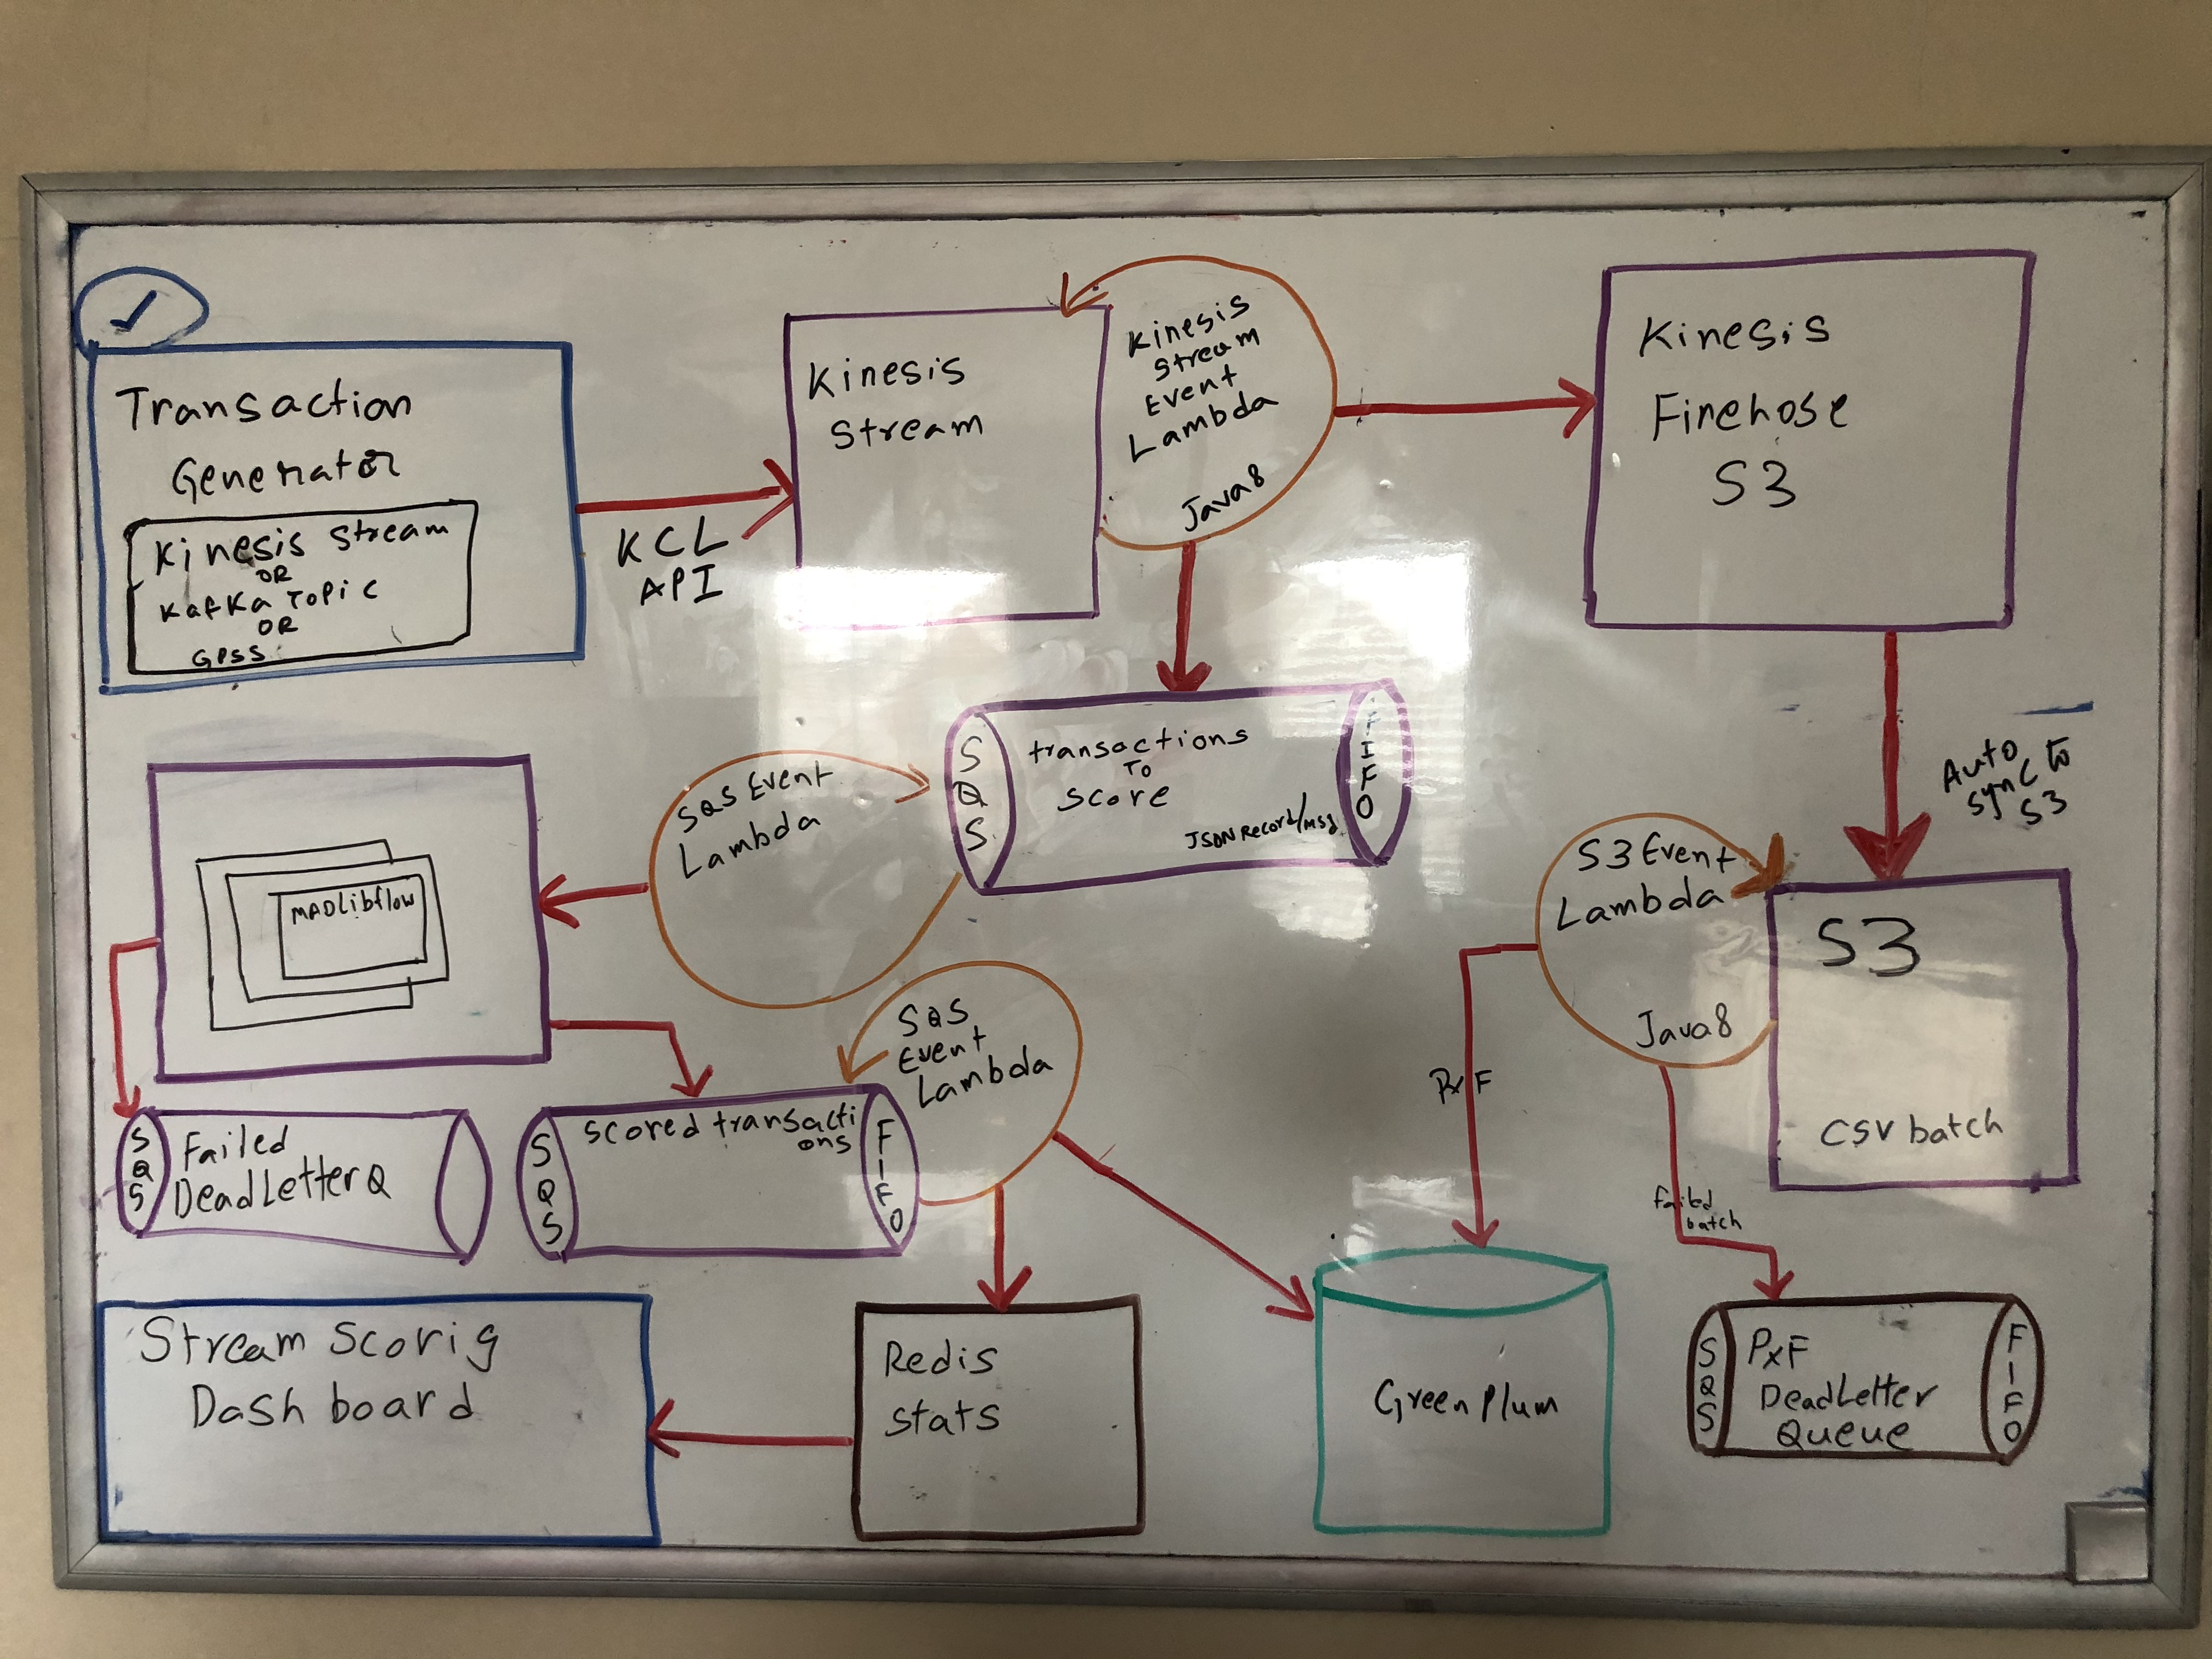 Transaction
Generator
Kinesis Stream
OR
Kafka Topic
OR
GPSS
KCL
API
Kinesis
Stream
Kinesis
Stream
Event
Lambda
Java8
Kinesis
Firehose
S3
Auto
sync to
S3
SQS
transactions
To
score
JSON Record/Msg
FIFO
SQS Event
Lambda
MADLibflow
S3 Event
Lambda
Java8
S3
CSV batch
SQS
Event
Lambda
SQS
Failed
DeadLetterQ
SQS
Scored transacti
ons
FIFO
PXF
failed
batch
Stream Scorig
Dashboard
Redis
stats
GreenPlum
SQS
PXF
DeadLetter
Queue
FIFO